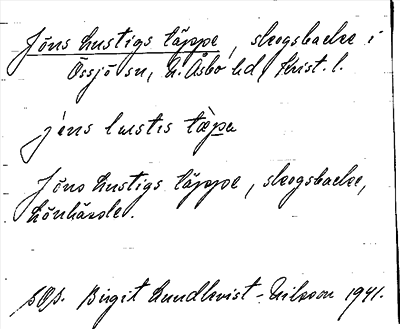 Jöns Lustigs täppe, skogsbacke i
Össjö sn, N. Åsbo hd, Krist. l.
jèns lustis tæpa
Jöns Lustigs täppe, skogsbacke,
Lönhässle.
Birgit Lundkvist-Nilsson 1941.